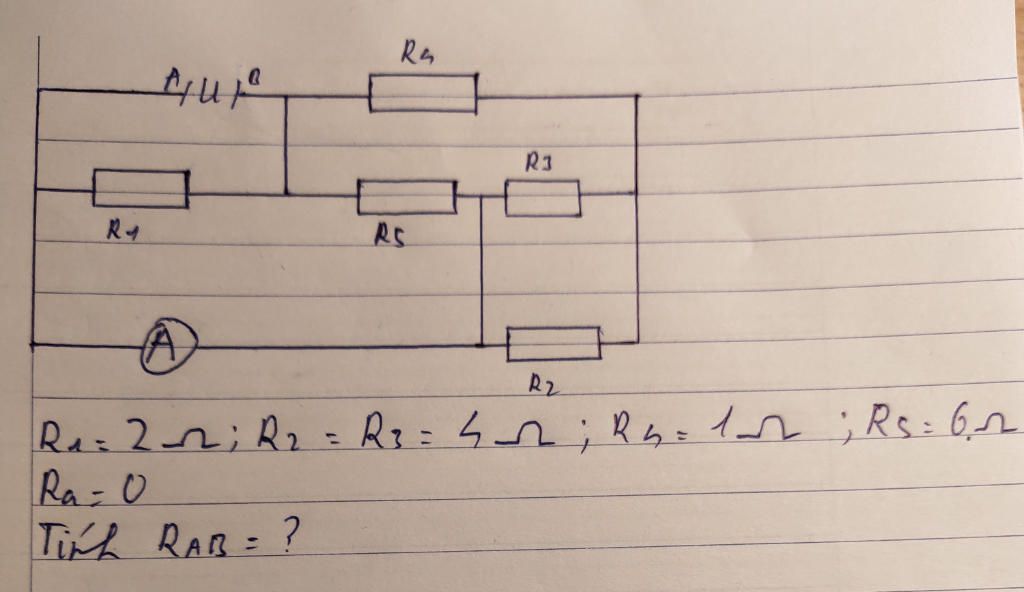 R4
A U B
R3
R1
R5
A
R2
R1 = 2 Ω ; R2 = R3 = 4 Ω ; R4 = 1 Ω ; R5 = 6 Ω
Ra = 0
Tính RAB = ?